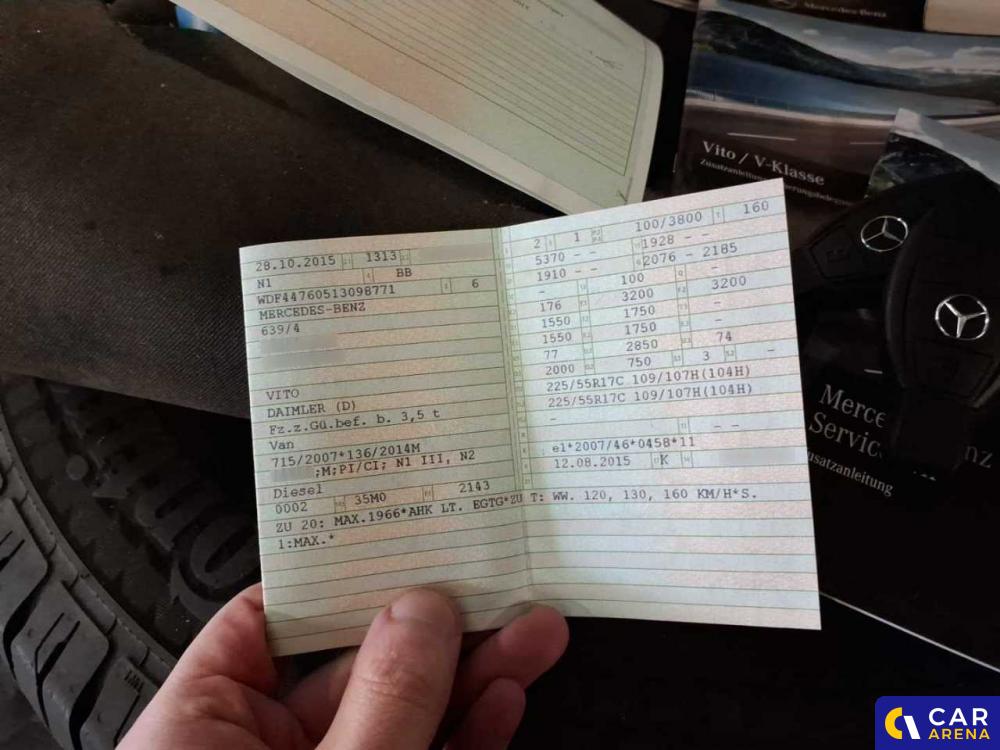 Mercedes-Benz
Vito / V-Klasse
28.10.2015 1313
N1 BB
WDF44760513098771 6
MERCEDES-BENZ
639/4
VITO
DAIMLER (D)
Fz.z.Gü.bef. b. 3,5 t
Van
715/2007*136/2014M
;M;PI/CI; N1 III, N2
Diesel
0002 35M0 2143
ZU 20: MAX.1966*AHK LT. EGTG*ZU T: WW. 120, 130, 160 KM/H*S.
1:MAX.*
2 1 100/3800 160
5370 - - 1928 - -
1910 - - 2076 - 2185
- 100 -
176 3200 3200
1550 1750 -
1550 1750 -
77 2850 74
2000 750 3 -
225/55R17C 109/107H(104H)
225/55R17C 109/107H(104H)
-
- -
e1*2007/46*0458*11
12.08.2015 K
Zusatzanleitung
CAR
ARENA